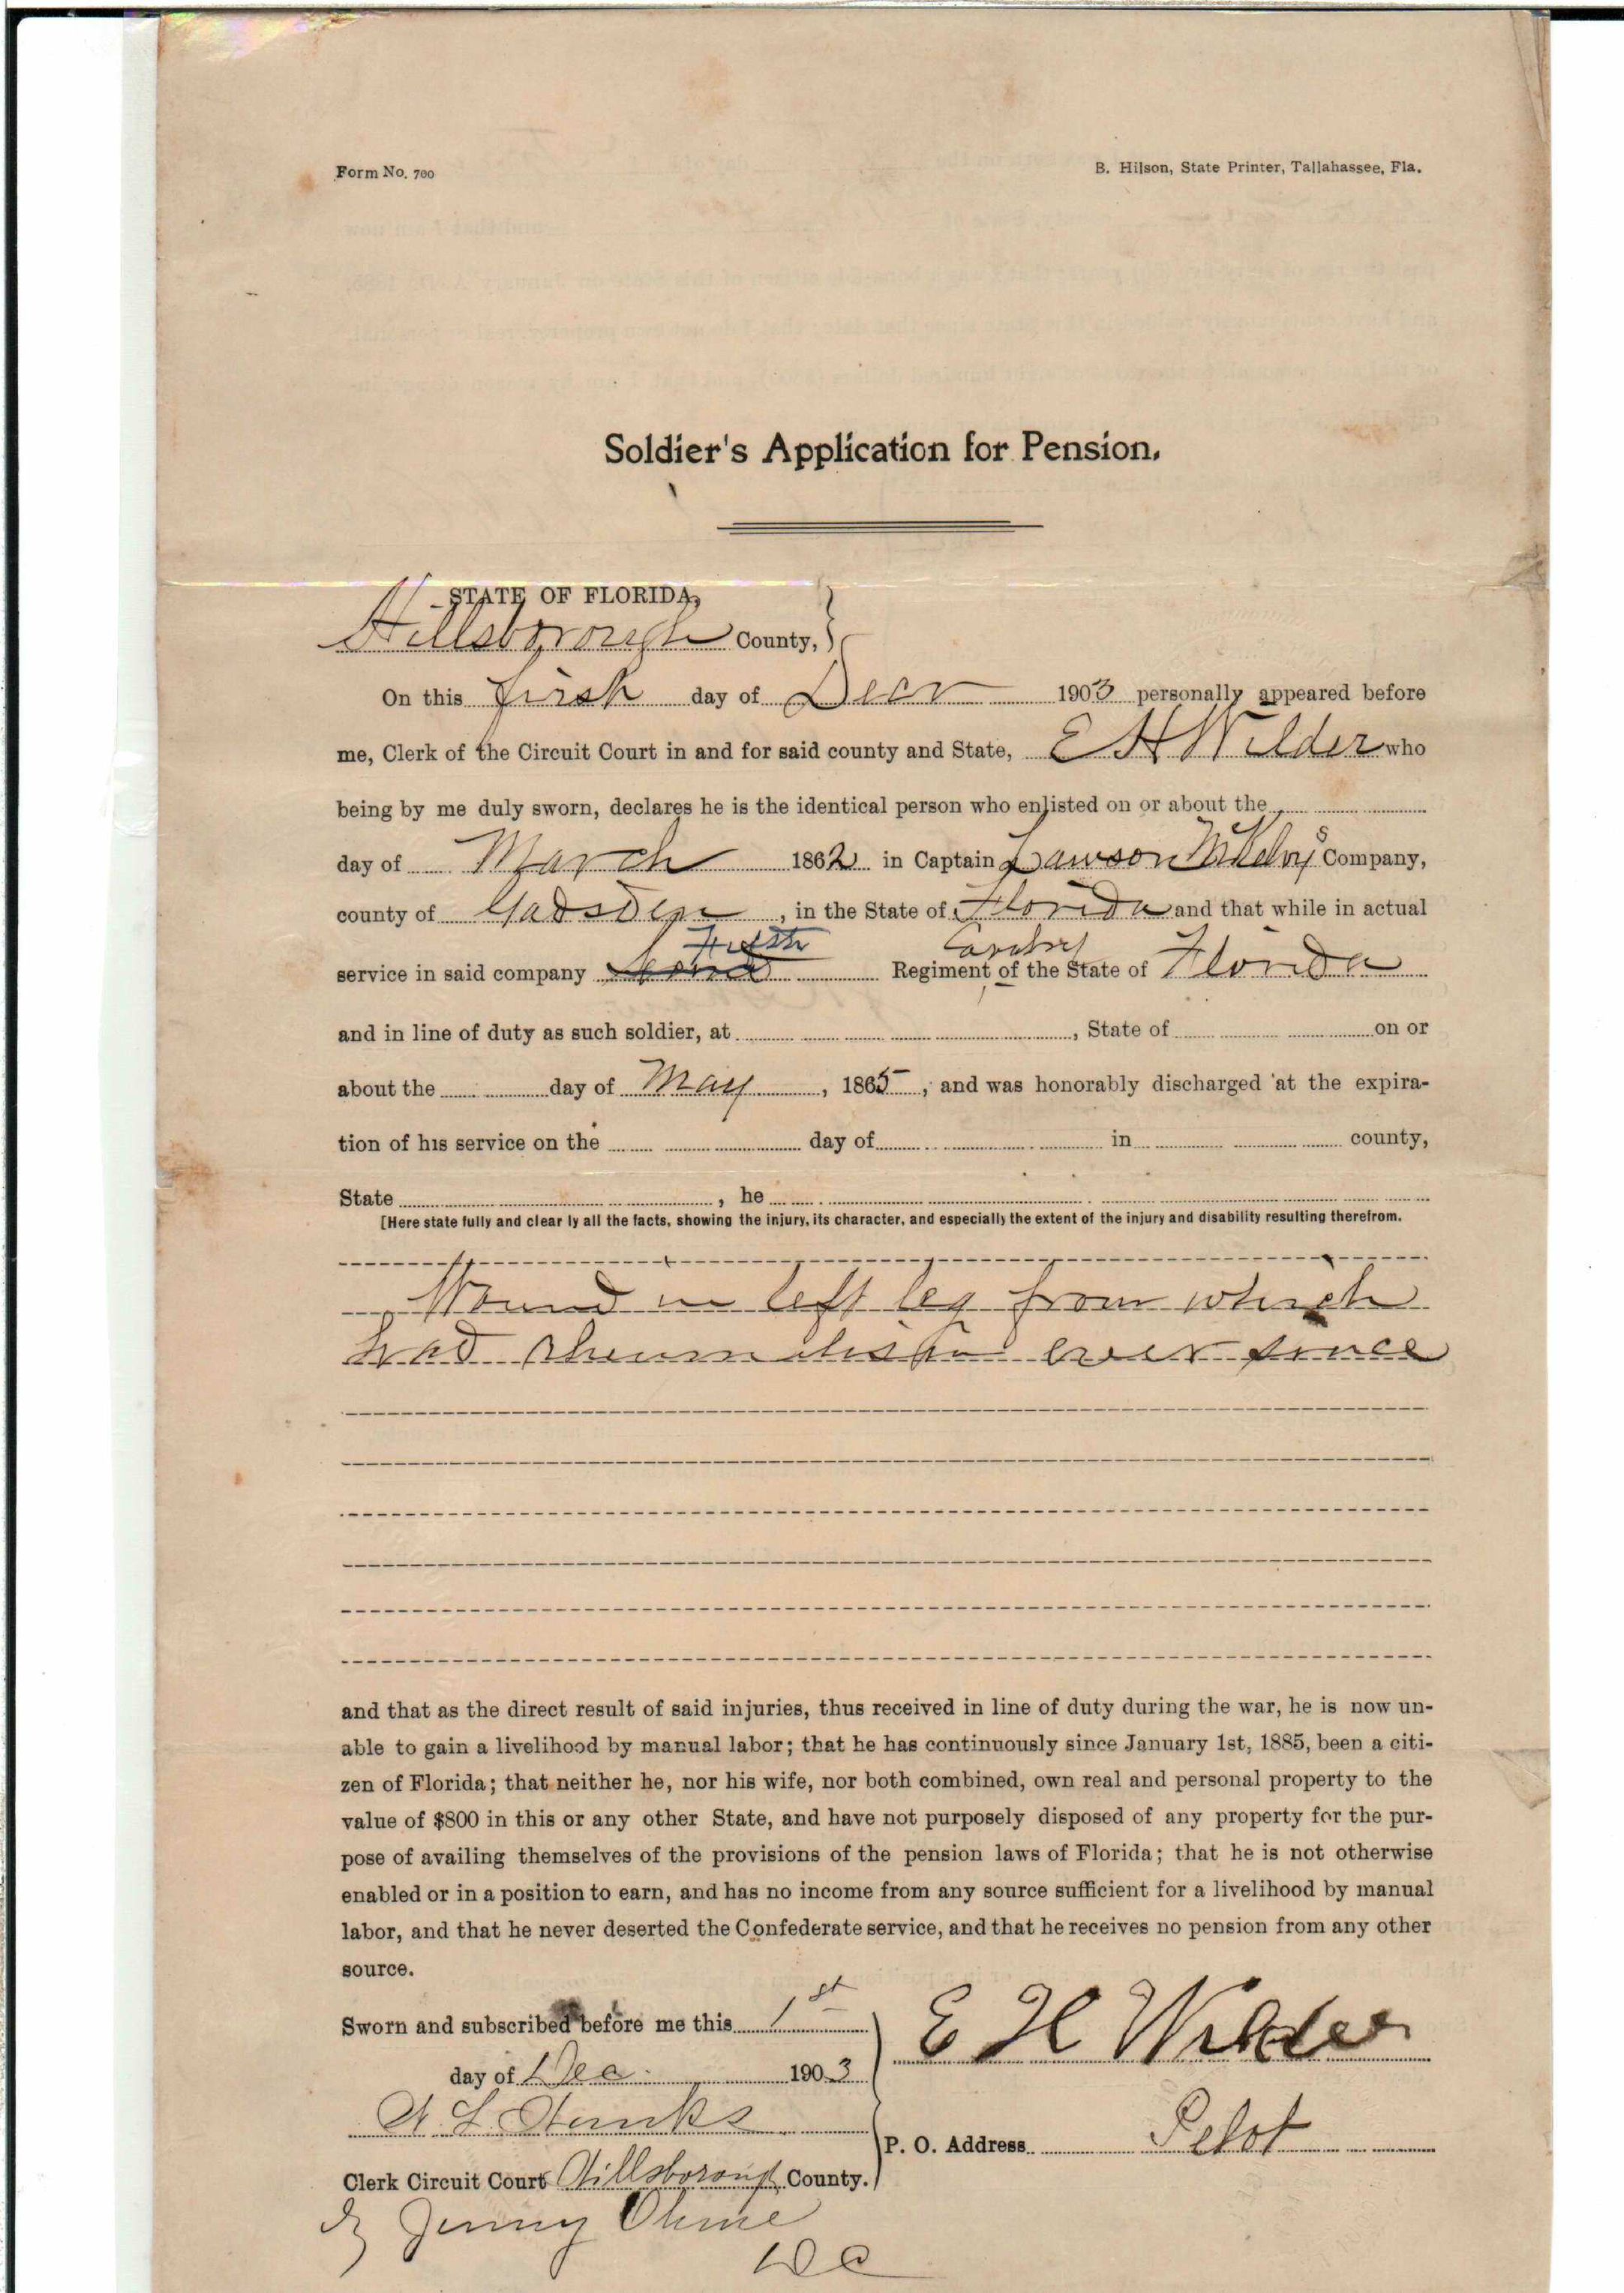 Form No. 700
B. Hilson, State Printer, Tallahassee, Fla.
Soldier's Application for Pension.
STATE OF FLORIDA,
Hillsborough County,
On this first day of Decr 1903 personally appeared before
me, Clerk of the Circuit Court in and for said county and State, E H Wilder who
being by me duly sworn, declares he is the identical person who enlisted on or about the
day of March 1862 in Captain Lawson Company,
county of Gadsden, in the State of Florida and that while in actual
Fifth Cavalry
service in said company Regiment of the State of Florida
and in line of duty as such soldier, at , State of on or
about the day of May, 1865, and was honorably discharged at the expira-
tion of his service on the day of in county,
State , he
[Here state fully and clearly all the facts, showing the injury, its character, and especially the extent of the injury and disability resulting therefrom.
Wound in left leg from which
had rheumatism ever since
and that as the direct result of said injuries, thus received in line of duty during the war, he is now un-
able to gain a livelihood by manual labor; that he has continuously since January 1st, 1885, been a citi-
zen of Florida; that neither he, nor his wife, nor both combined, own real and personal property to the
value of $800 in this or any other State, and have not purposely disposed of any property for the pur-
pose of availing themselves of the provisions of the pension laws of Florida; that he is not otherwise
enabled or in a position to earn, and has no income from any source sufficient for a livelihood by manual
labor, and that he never deserted the Confederate service, and that he receives no pension from any other
source.
Sworn and subscribed before me this 1st
E H Wilder
day of Dec. 1903
P. O. Address Pelot
Clerk Circuit Court Hillsborough County.
Jenny
DC